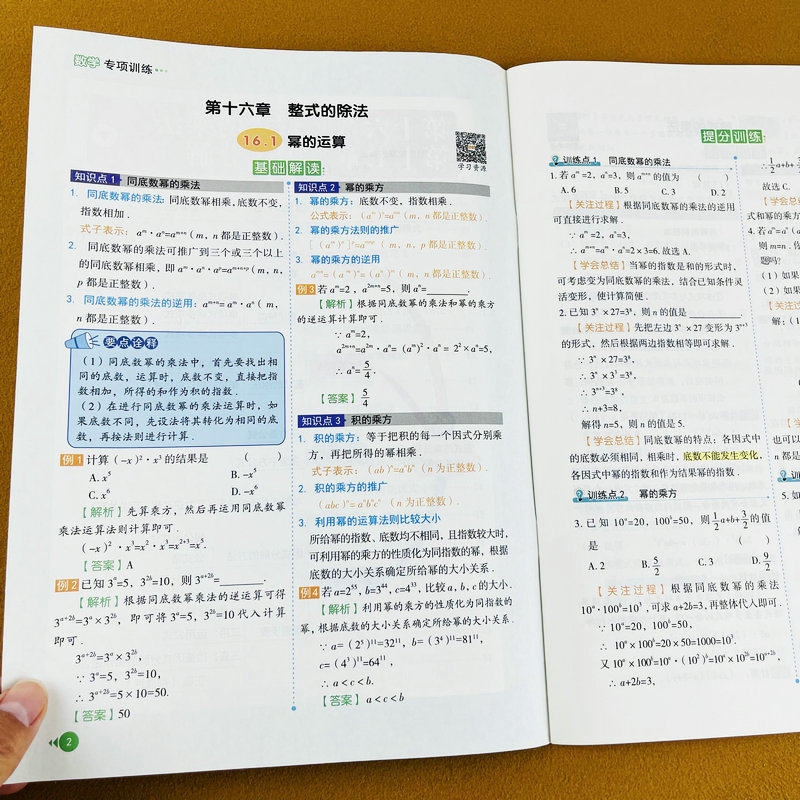 数学 专项训练
第十六章 整式的除法
16.1 幂的运算
学习资源
基础解读
知识点1 同底数幂的乘法
1. 同底数幂的乘法: 同底数幂相乘,底数不变,
指数相加.
式子表示: aᵐ·aⁿ=aᵐ⁺ⁿ (m, n都是正整数).
2. 同底数幂的乘法可推广到三个或三个以上
的同底数幂相乘, 即 aᵐ·aⁿ·aᵖ=aᵐ⁺ⁿ⁺ᵖ (m, n,
p都是正整数).
3. 同底数幂的乘法的逆用: aᵐ⁺ⁿ=aᵐ·aⁿ (m,
n都是正整数).
要点诠释
(1) 同底数幂的乘法中, 首先要找出相
同的底数, 运算时, 底数不变, 直接把指
数相加, 所得的和作为积的指数.
(2) 在进行同底数幂的乘法运算时, 如
果底数不同, 先设法将其转化为相同的底
数, 再按法则进行计算.
例1 计算 (-x)²·x³的结果是 ( )
A. x⁵ B. -x⁵
C. x⁶ D. -x⁶
【解析】先算乘方, 然后再运用同底数幂
乘法运算法则计算即可.
(-x)²·x³=x²·x³=x²⁺³=x⁵.
【答案】A
例2 已知3ᵃ=5, 3²ᵇ=10, 则3ᵃ⁺²ᵇ=______.
【解析】根据同底数幂乘法的逆运算可得
3ᵃ⁺²ᵇ=3ᵃ×3²ᵇ, 即可将3ᵃ=5, 3²ᵇ=10代入计算
即可.
3ᵃ⁺²ᵇ=3ᵃ×3²ᵇ,
∵ 3ᵃ=5, 3²ᵇ=10,
∴ 3ᵃ⁺²ᵇ=5×10=50.
【答案】50
2
知识点2 幂的乘方
1. 幂的乘方: 底数不变, 指数相乘.
公式表示: (aᵐ)ⁿ=aᵐⁿ (m, n都是正整数).
2. 幂的乘方法则的推广
[(aᵐ)ⁿ]ᵖ=aᵐⁿᵖ (m, n, p都是正整数).
3. 幂的乘方的逆用
aᵐⁿ=(aᵐ)ⁿ=(aⁿ)ᵐ (m, n都是正整数).
例3 若aᵐ=2, a²ᵐ⁺ⁿ=5, 则aⁿ=______.
【解析】根据同底数幂的乘法和幂的乘方
的逆运算计算即可.
∵ aᵐ=2,
a²ᵐ⁺ⁿ=a²ᵐ·aⁿ=(aᵐ)²·aⁿ=2²×aⁿ=5,
∴ aⁿ=5/4.
【答案】5/4
知识点3 积的乘方
1. 积的乘方: 等于把积的每一个因式分别乘
方, 再把所得的幂相乘.
式子表示: (ab)ⁿ=aⁿbⁿ (n为正整数).
2. 积的乘方的推广
(abc)ⁿ=aⁿbⁿcⁿ (n为正整数).
3. 利用幂的运算法则比较大小
所给幂的指数、底数均不相同, 且指数较大时,
可利用幂的乘方的性质化为同指数的幂, 根据
底数的大小关系确定所给幂的大小关系.
例4 若a=2⁵⁵, b=3⁴⁴, c=4³³, 比较a, b, c的大小.
【解析】利用幂的乘方的性质化为同指数的
幂, 根据底数的大小关系确定所给幂的大小关系.
∵ a=(2⁵)¹¹=32¹¹, b=(3⁴)¹¹=81¹¹,
c=(4³)¹¹=64¹¹,
∴ a<c<b.
【答案】a<c<b
提分训练
训练点1 同底数幂的乘法
1. 若aᵐ=2, aⁿ=3, 则aᵐ⁺ⁿ的值为 ( )
A. 6 B. 5 C. 3 D. 2
【关注过程】根据同底数幂的乘法的逆用
可直接进行求解.
∵ aᵐ=2, aⁿ=3,
∴ aᵐ⁺ⁿ=aᵐ·aⁿ=2×3=6. 故选A.
【学会总结】当幂的指数是和的形式时,
可考虑变为同底数幂的乘法, 结合已知条件灵
活变形, 使计算简便.
2. 已知3ⁿ×27=3⁸, 则n的值是______.
【关注过程】先把左边3ⁿ×27变形为3ⁿ⁺³
的形式, 然后根据两边指数相等即可求解.
∵ 3ⁿ×27=3⁸,
∴ 3ⁿ×3³=3⁸,
∴ 3ⁿ⁺³=3⁸,
∴ n+3=8,
解得n=5, 则n的值是5.
【学会总结】同底数幂的特点: 各因式中
的底数必须相同, 相乘时, 底数不能发生变化,
各因式中幂的指数和作为结果幂的指数.
训练点2 幂的乘方
3. 已知10ᵃ=20, 100ᵇ=50, 则1/2a+b+3/2的值
是 ( )
A. 2 B. 5/2 C. 3 D. 9/2
【关注过程】根据同底数幂的乘法
10ᵃ·100ᵇ=10³, 可求a+2b=3, 再整体代入即可.
∵ 10ᵃ=20, 100ᵇ=50,
∴ 10ᵃ×100ᵇ=20×50=1000=10³.
又10ᵃ×100ᵇ=10ᵃ·(10²)ᵇ=10ᵃ×10²ᵇ=10ᵃ⁺²ᵇ,
∴ a+2b=3,
∴1/2a+b+
故选C.
【学会总
式和幂的乘方
4. 若aᵐ=aⁿ
则m=n. 
题吗?
(1) 如果
(2) 如果
【关注
解: (1
【学会
也可以
n都是
5. 如